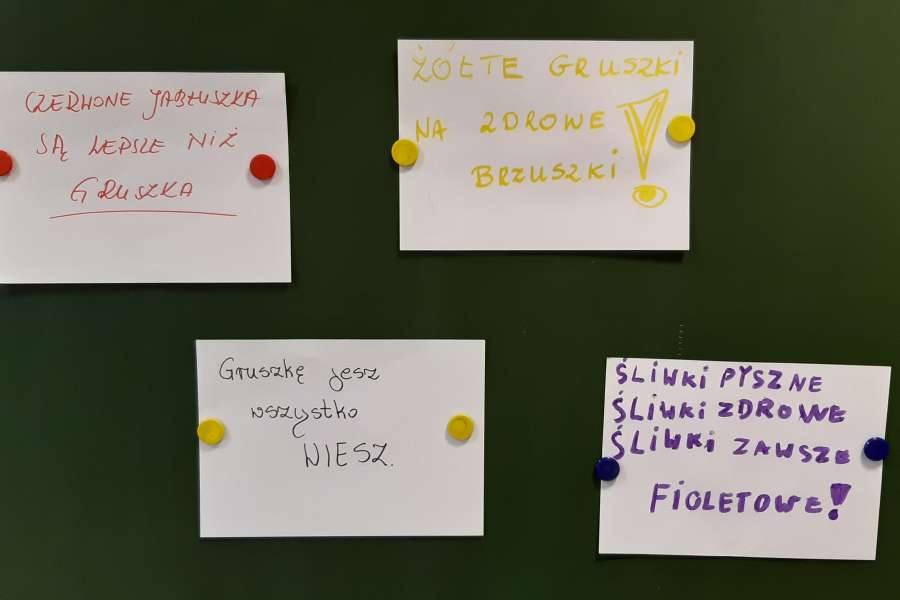 CZERWONE JABŁUSZKA
SĄ LEPSZE NIŻ
GRUSZKA
ŻÓŁTE GRUSZKI
NA ZDROWE
BRZUSZKI!
Gruszkę jesz
wszystko
WIESZ.
ŚLIWKI PYSZNE
ŚLIWKI ZDROWE
ŚLIWKI ZAWSZE
FIOLETOWE!